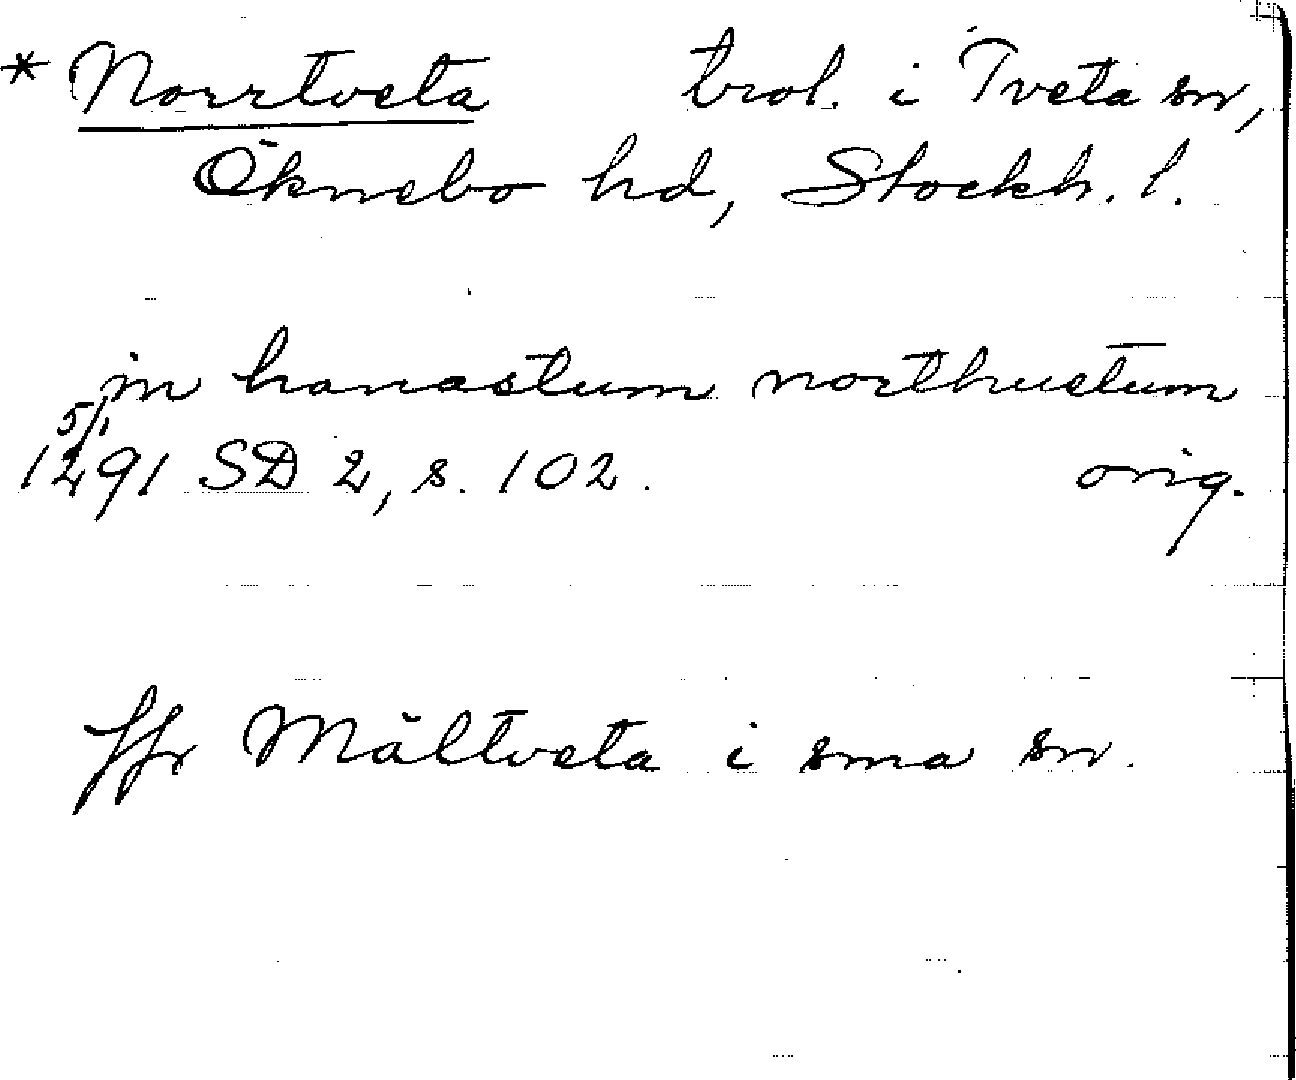 * Norrtveta trol. i Tveta sn,
Öknebo hd, Stockh. l.
in hanastum northuetum
5/1
1291 SD 2, s. 102. orig.
Jfr Mältveta i sma sn.